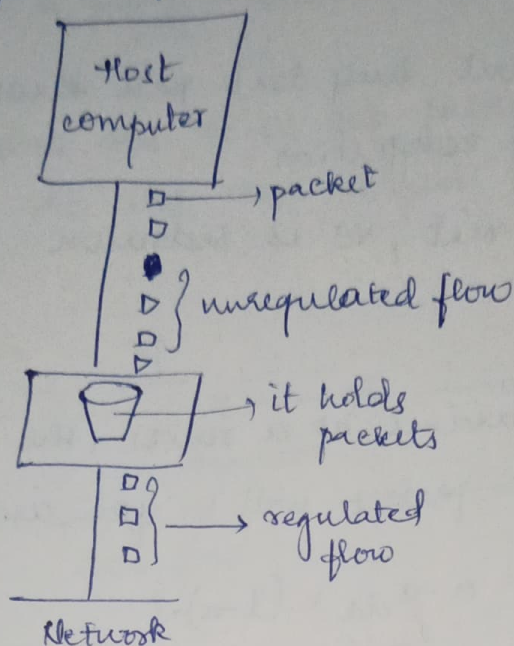 Host
computer
packet
unregulated flow
it holds
packets
regulated
flow
Network